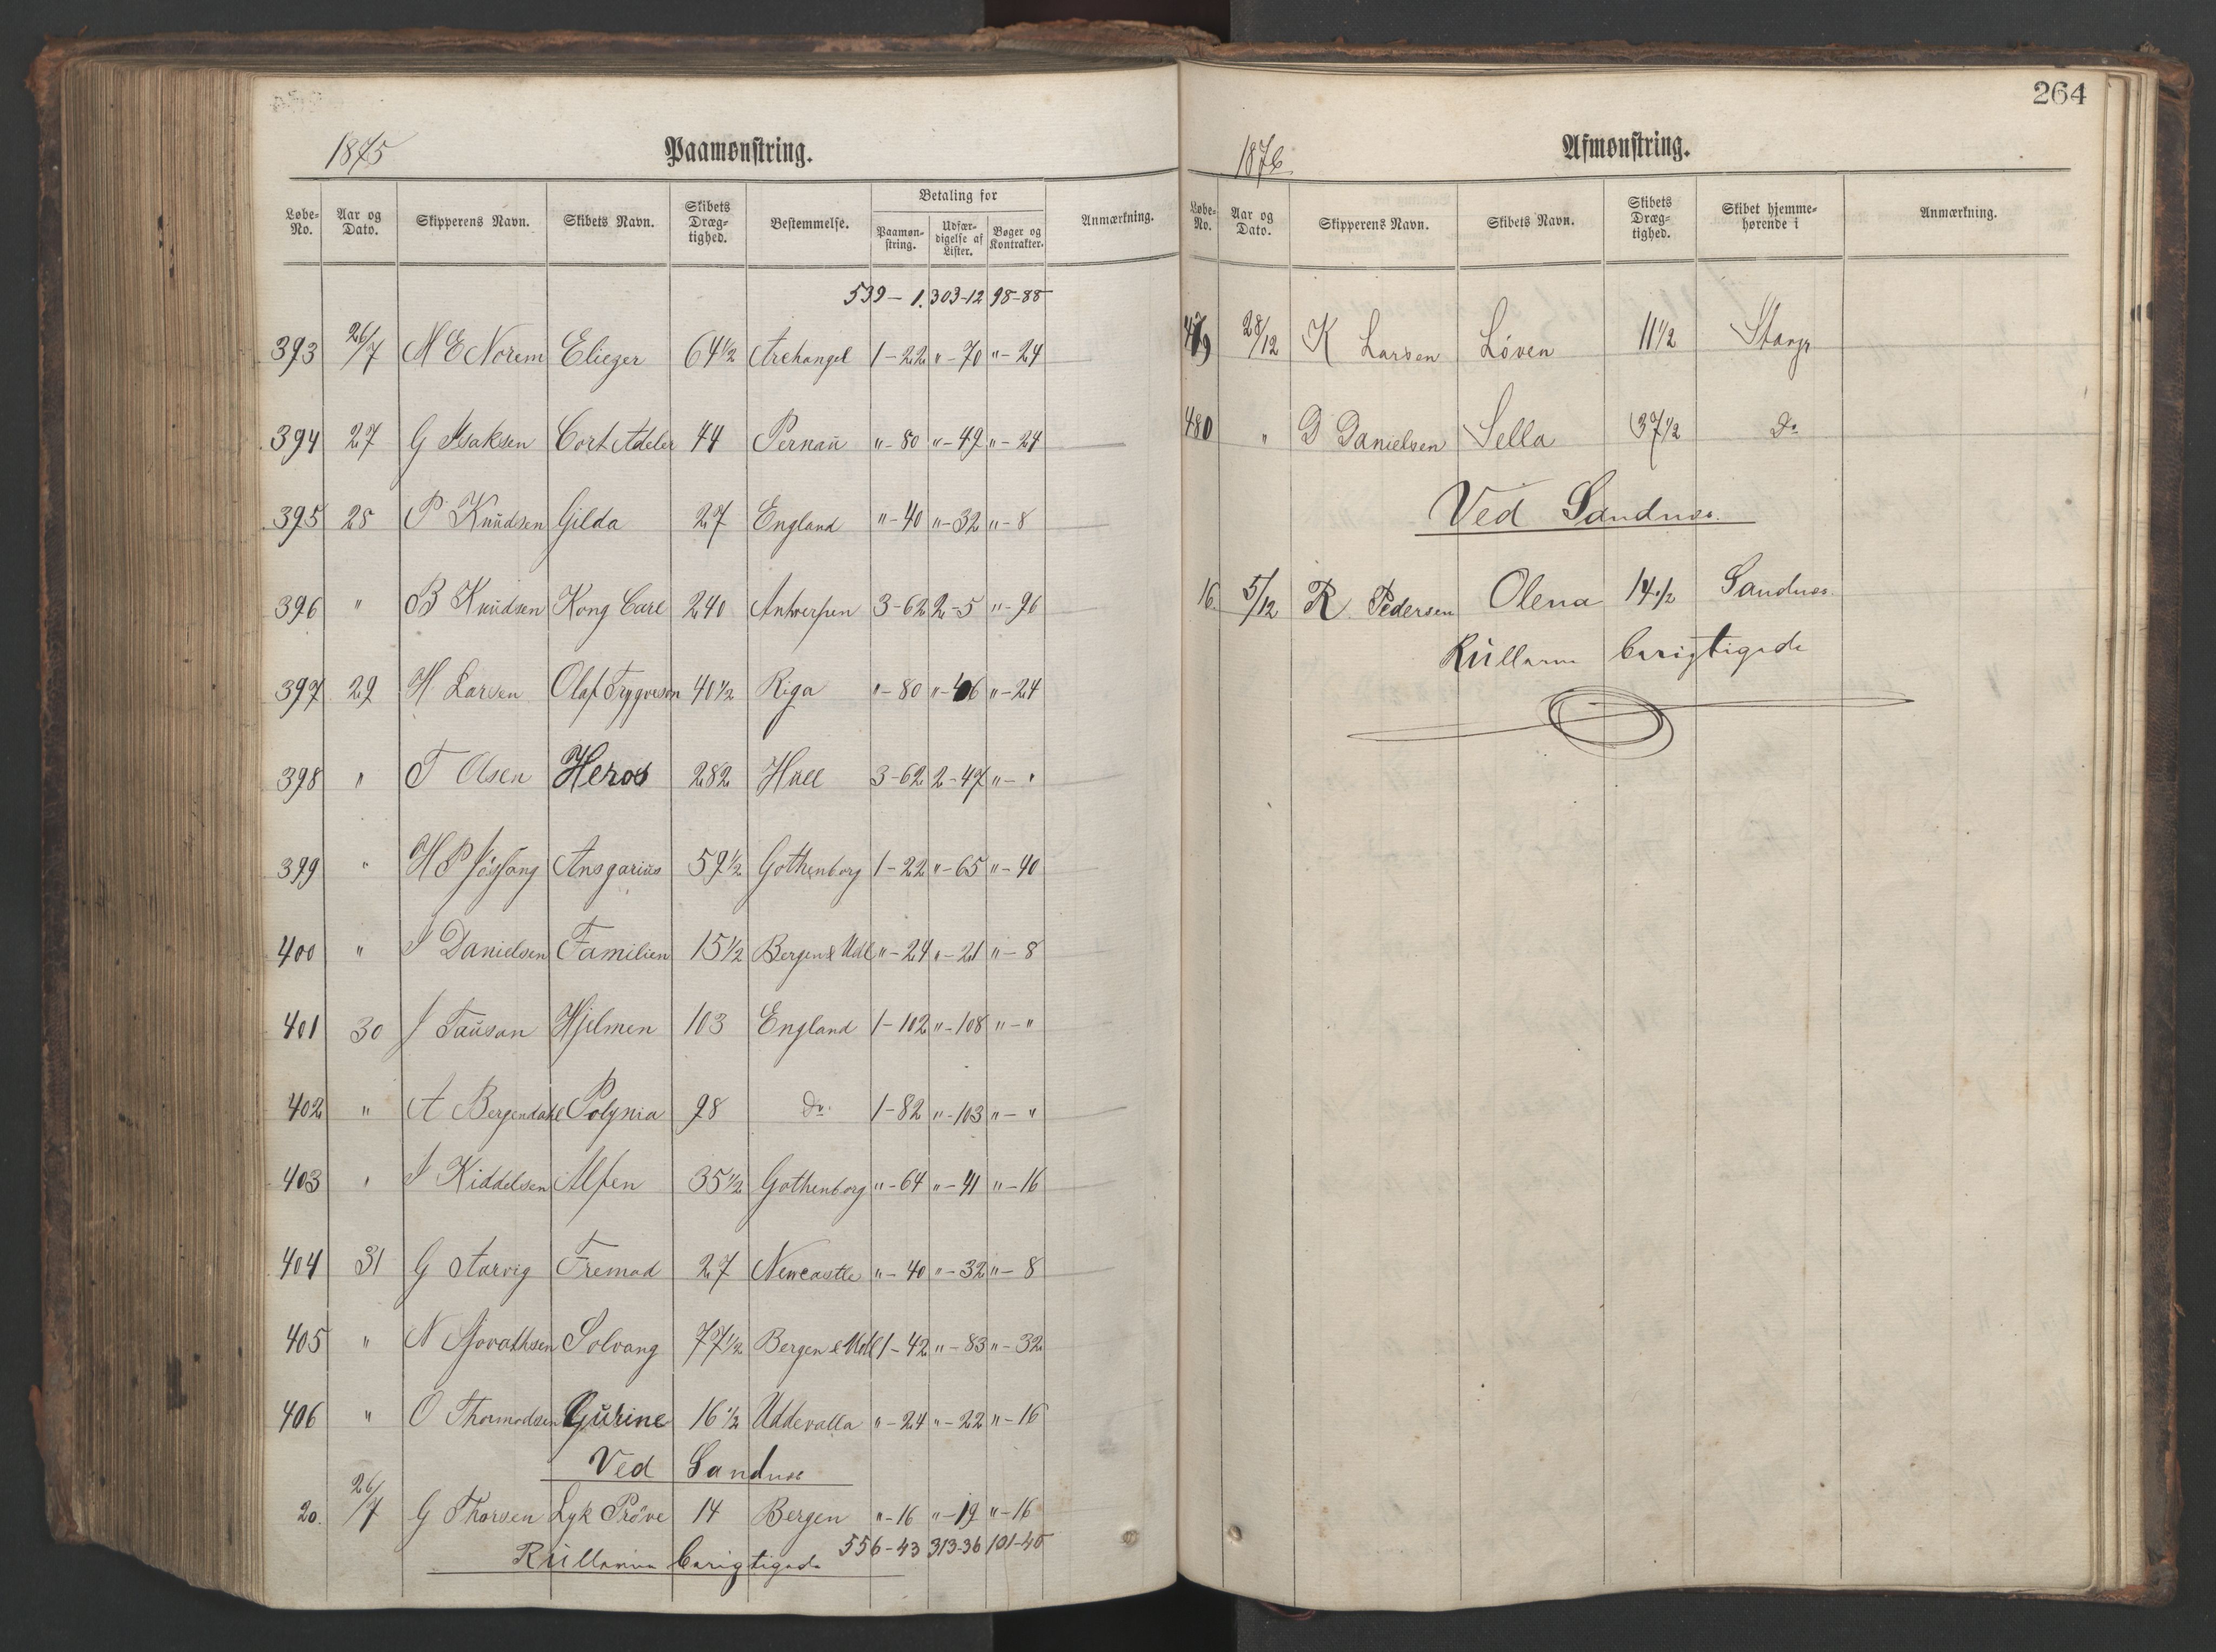 1875 Paamønstring.
Løbe-No. Aar og Dato. Skipperens Navn. Skibets Navn. Skibets Dræg-tighed. Bestemmelse. Betaling for Paamøn-string. Udfær-digelse af Lister. Bøger og Kontrakter. Anmærkning.
539-1. 303-12 98-88
393 26/7 N E Norem Eliezer 64 1/2 Archangel 1-22 "-70 "-24
394 27 G Isaksen Cort Adeler 44 Pernaŭ "-80 "-49 "-24
395 28 P Knŭdsen Gilda 27 England "-40 "-32 "-8
396 " B Knŭdsen Kong Carl 240 Antwerpen 3-62 2-5 "-96
397 29 H Larsen Olaf Trygveson 40 1/2 Riga "-80 "-46 "-24
398 " T Olsen Heros 282 Hull 3-62 2-47 "-"
399 " H P Ansgarius 59 1/2 Gothenborg 1-22 "-65 "-40
400 " J Danielsen Familien 15 1/2 Bergen & Udl "-24 "-21 "-8
401 30 J Taŭsan Hjelmen 103 England 1-102 "-108 "-"
402 " A Bergendahl Polynia 98 Do. 1-82 "-103 "-"
403 " J Kiddelsen Alfen 35 1/2 Gothenborg "-64 "-41 "-16
404 31 G Aarvig Fremad 27 Newcastle "-40 "-32 "-8
405 " N Solvang 77 1/2 Bergen & Udl 1-42 "-83 "-32
406 " O Thormodsen Gŭrine 16 1/2 Uddevalla "-24 "-22 "-16
Ved Sandnes
20. 26/7 G Thorsen Lyk Pröve 14 Bergen "-16 "-19 "-16
556-43 313-36 101-40
Rŭllerne berigtigede
264
1876 Afmønstring.
Løbe-No. Aar og Dato. Skipperens Navn. Skibets Navn. Skibets Dræg-tighed. Skibet hjemme-hørende i Anmærkning.
479 28/12 K Larsen Löven 11 1/2 Stavgr
480 " D Danielsen Sella 37 1/2 Do
Ved Sandnes.
16. 5/12 R. Pedersen Olena 14 1/2 Sandnes.
Rŭllerne berigtigede